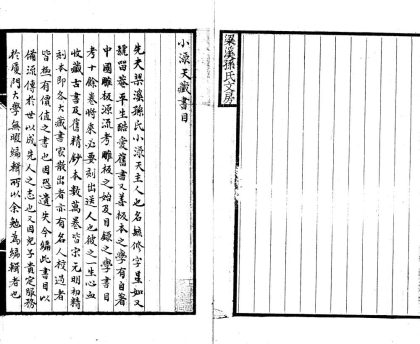 小淥天藏書目
先夫梁溪孫氏小淥天主人也名毓修字星如又
號留菴平生酷愛舊書又善板本之學有自著
中國雕板源流考雕板之始及目錄之學書目
考十餘卷將來必要刻出送人也彼之一生心血
收藏古書及舊精鈔本數萬卷皆宋元明初精
刻本即各大藏書家散出者亦有名人校過者
皆極有價值之書也因恐遺失今編此書目以
備流傳於世以成先人之志也又因兒子貴定服務
於廈門大學無暇編輯所以余勉為編輯者也
梁溪孫氏文房